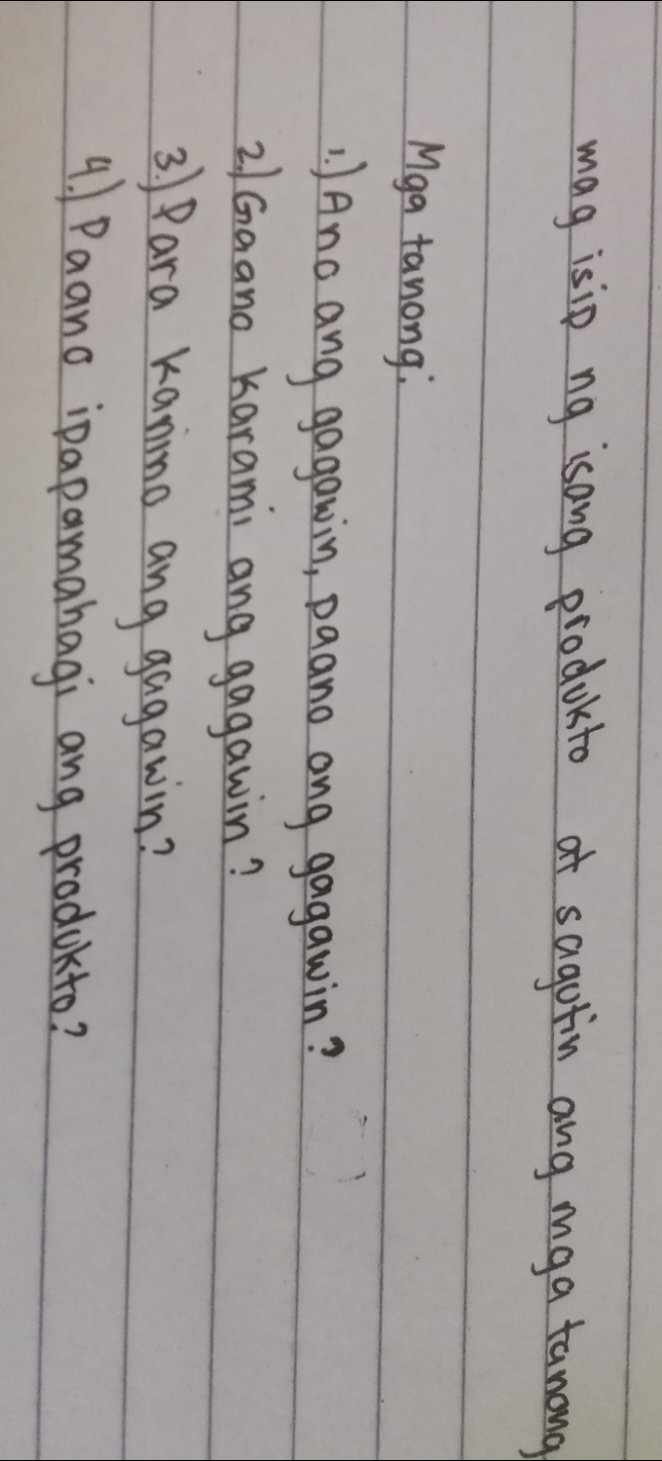 mag isip ng isang produkto at sagutin ang mga tanong
Mga tanong:
1.) Ano ang gagawin, paano ang gagawin?
2.) Gaano karami ang gagawin?
3.) Para kanino ang gagawin?
4.) Paano ipapamahagi ang produkto?